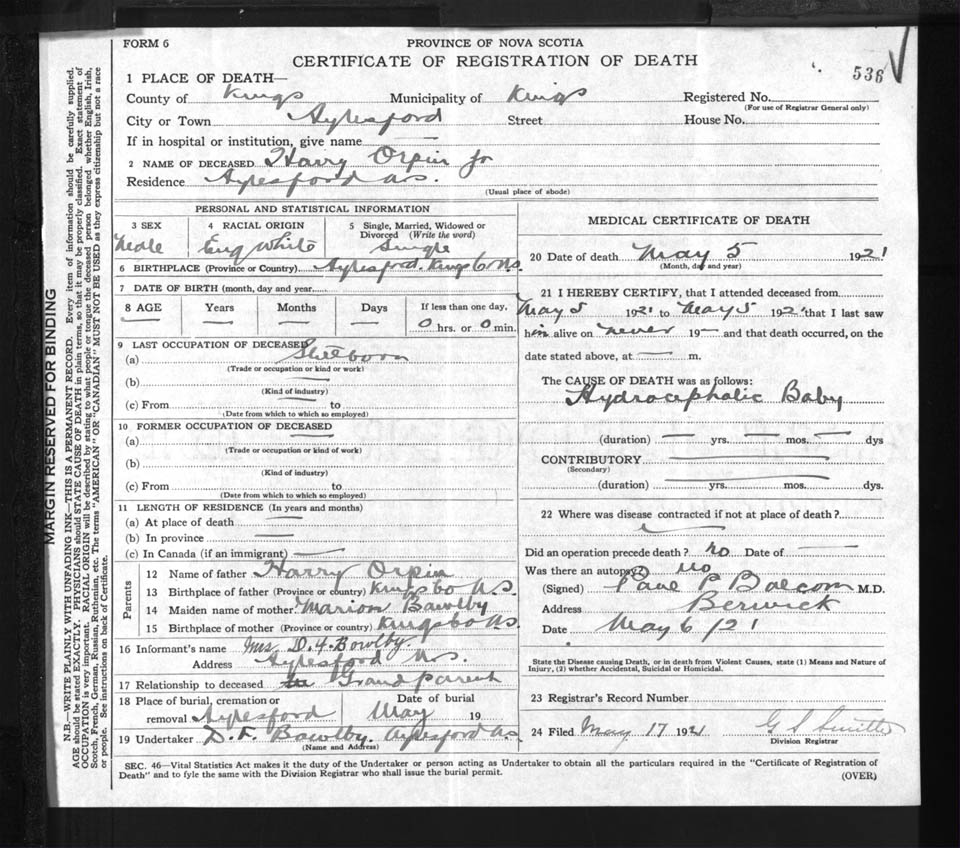 FORM 6
PROVINCE OF NOVA SCOTIA
CERTIFICATE OF REGISTRATION OF DEATH
536
1 PLACE OF DEATH—
County of Kings Municipality of Kings Registered No.
(For use of Registrar General only)
City or Town Aylesford Street House No.
If in hospital or institution, give name —
2 NAME OF DECEASED Harry Orpin Jr
Residence Aylesford N.S.
(Usual place of abode)
PERSONAL AND STATISTICAL INFORMATION
3 SEX 4 RACIAL ORIGIN 5 Single, Married, Widowed or
Divorced (Write the word)
Male Eng White Single
6 BIRTHPLACE (Province or Country) Aylesford Kings Co NS.
7 DATE OF BIRTH (month, day and year)
8 AGE Years Months Days If less than one day,
— — — — 0 hrs. or 0 min.
9 LAST OCCUPATION OF DECEASED
(a) Stillborn
(Trade or occupation or kind or work)
(b) —
(Kind of industry)
(c) From to
(Date from which to which so employed)
10 FORMER OCCUPATION OF DECEASED
(a) —
(Trade or occupation or kind of work)
(b)
(Kind of industry)
(c) From to
(Date from which to which so employed)
11 LENGTH OF RESIDENCE (In years and months)
(a) At place of death —
(b) In province —
(c) In Canada (if an immigrant) —
Parents
12 Name of father Harry Orpin
13 Birthplace of father (Province or country) Kings Co N.S.
14 Maiden name of mother Marion Bawlby
15 Birthplace of mother (Province or country) Kings Co N.S.
16 Informant's name Mrs D. F. Bowlby.
Address Aylesford N.S.
17 Relationship to deceased Grand parent
18 Place of burial, cremation or Date of burial
removal Aylesford May 19
19 Undertaker D. F. Bawlby. Aylesford N.S.
(Name and Address)
MEDICAL CERTIFICATE OF DEATH
20 Date of death May 5 1921
(Month, day and year)
21 I HEREBY CERTIFY, that I attended deceased from
May 5 1921 to May 5 1921 that I last saw
him alive on never 19— and that death occurred, on the
date stated above, at — m.
The CAUSE OF DEATH was as follows:
Hydrocephalic Baby
(duration) — yrs. — mos. — dys
CONTRIBUTORY
(Secondary)
(duration) yrs. mos. dys.
22 Where was disease contracted if not at place of death?
Did an operation precede death? no Date of —
Was there an autopsy? no
(Signed) P Balcom M.D.
Address Berwick
Date May 6/21
State the Disease causing Death, or in death from Violent Causes, state (1) Means and Nature of
Injury, (2) whether Accidental, Suicidal or Homicidal.
23 Registrar's Record Number
24 Filed May 17 1921 G S
Division Registrar
SEC. 46—Vital Statistics Act makes it the duty of the Undertaker or person acting as Undertaker to obtain all the particulars required in the "Certificate of Registration of
Death" and to fyle the same with the Division Registrar who shall issue the burial permit.
(OVER)
MARGIN RESERVED FOR BINDING
N.B.—WRITE PLAINLY WITH UNFADING INK—THIS IS A PERMANENT RECORD. Every item of information should be carefully supplied.
AGE should be stated EXACTLY. PHYSICIANS should STATE CAUSE OF DEATH in plain terms, so that it may be properly classified. Exact statement of
OCCUPATION is very important. RACIAL ORIGIN will be described by stating to what people or tongue the deceased person belonged, whether English, Irish,
Scotch, French, German, Russian, Ruthenian, etc. The terms "AMERICAN" OR "CANADIAN" MUST NOT BE USED as they express citizenship but not a race
or people. See instructions on back of Certificate.